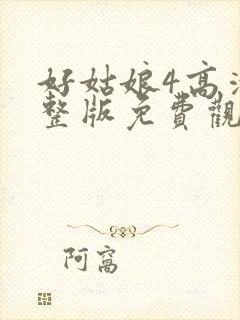 好姑娘4高
整版免費觀
阿窩